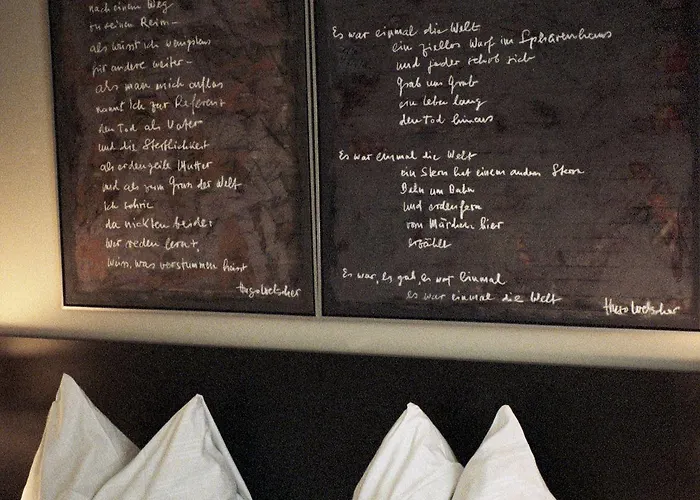 nach einem Weg
zu seinen Reim –
als wüsst ich wenigstens
für andere weiter –
als man mich auflas
nannt ich zur Referenz
den Tod als Vater
und die Sterblichkeit
als erdengeile Mutter
und als zum Gruss der Welt
ich schrie
da nickten beide:
Wer reden lernt,
weiss, was verstummen heisst
Hugo Loetscher
Es war einmal die Welt
ein zielloser Wurf im Sphärenhaus
und jeder schob sich
Grab um Grab
ein Leben lang
den Tod hinaus
Es war einmal die Welt
ein Stern bei einem andern Stern
Bahn um Bahn
und erdenfern
vom Märchen hier
erzählt
Es war, es gab, es war einmal
es war einmal die Welt
Hugo Loetscher